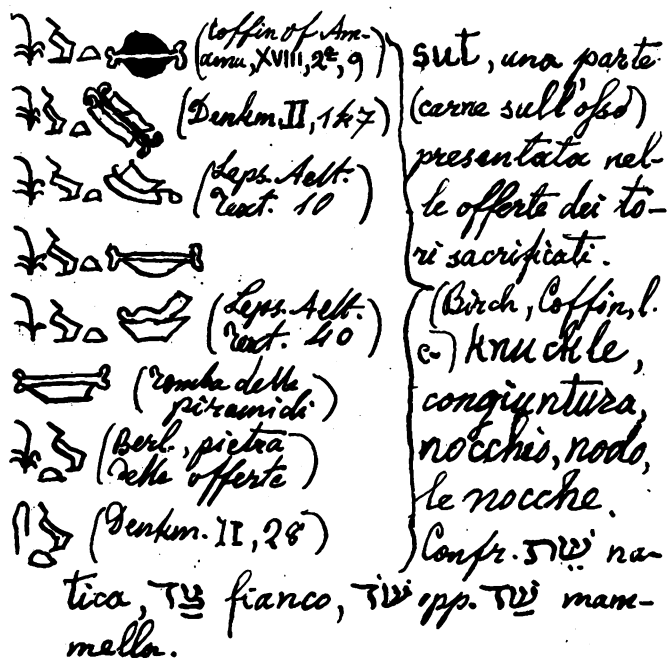 (Coffin of Am-
amu, XVIII, 2ª, 9)
(Denkm. II, 147)
(Leps. Aelt.
Text. 10
(Leps. Aelt.
Text. 40)
(Tomba delle
piramidi)
(Berl., pietra
delle offerte
(Denkm. II, 28)
sut, una parte
(carne sull'osso)
presentata nel-
le offerte dei to-
ri sacrificati.
(Birch, Coffin, l.
c.) knuckle,
congiuntura,
nocchio, nodo,
le nocche.
Confr. שֵׁת na-
tica, צַד fianco, שֹׁד opp. שַׁד mam-
mella.